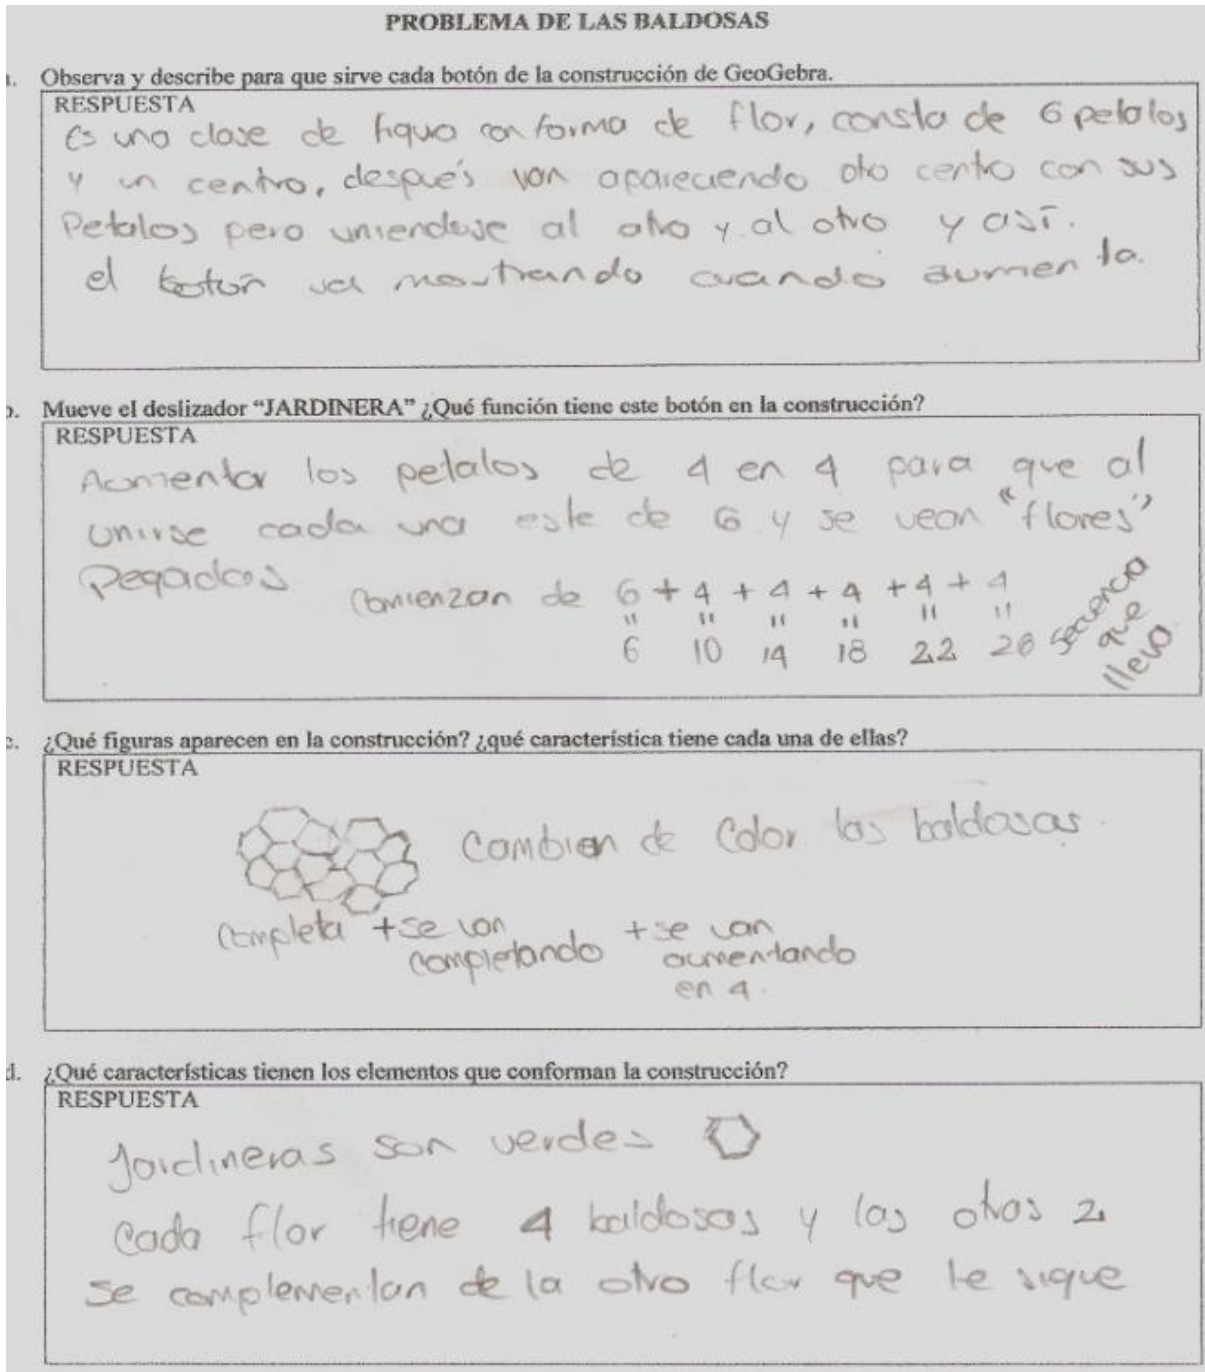 PROBLEMA DE LAS BALDOSAS
Observa y describe para que sirve cada botón de la construcción de GeoGebra.
RESPUESTA
Es una clase de figua con forma de flor, consta de 6 petalos
y un centro, después van apareciendo oto centro con sus
Petalos pero uniendose al otro y al otro y así.
el botón va mostrando cuando aumenta.
Mueve el deslizador “JARDINERA” ¿Qué función tiene este botón en la construcción?
RESPUESTA
Aumentar los petalos de 4 en 4 para que al
unirse cada una este de 6 y se vean "flores"
Pegadas
Comienzan de 6 + 4 + 4 + 4 + 4 + 4
" " " " " "
6 10 14 18 22 26
secuencia
que
lleva
c. ¿Qué figuras aparecen en la construcción? ¿qué característica tiene cada una de ellas?
RESPUESTA
Cambian de Color las baldosas.
Completa + se van + se van
completando aumentando
en 4.
d. ¿Qué características tienen los elementos que conforman la construcción?
RESPUESTA
Jardineras son verdes
Cada flor tiene 4 baldosas y las otras 2
se complementan de la otro flor que le sigue